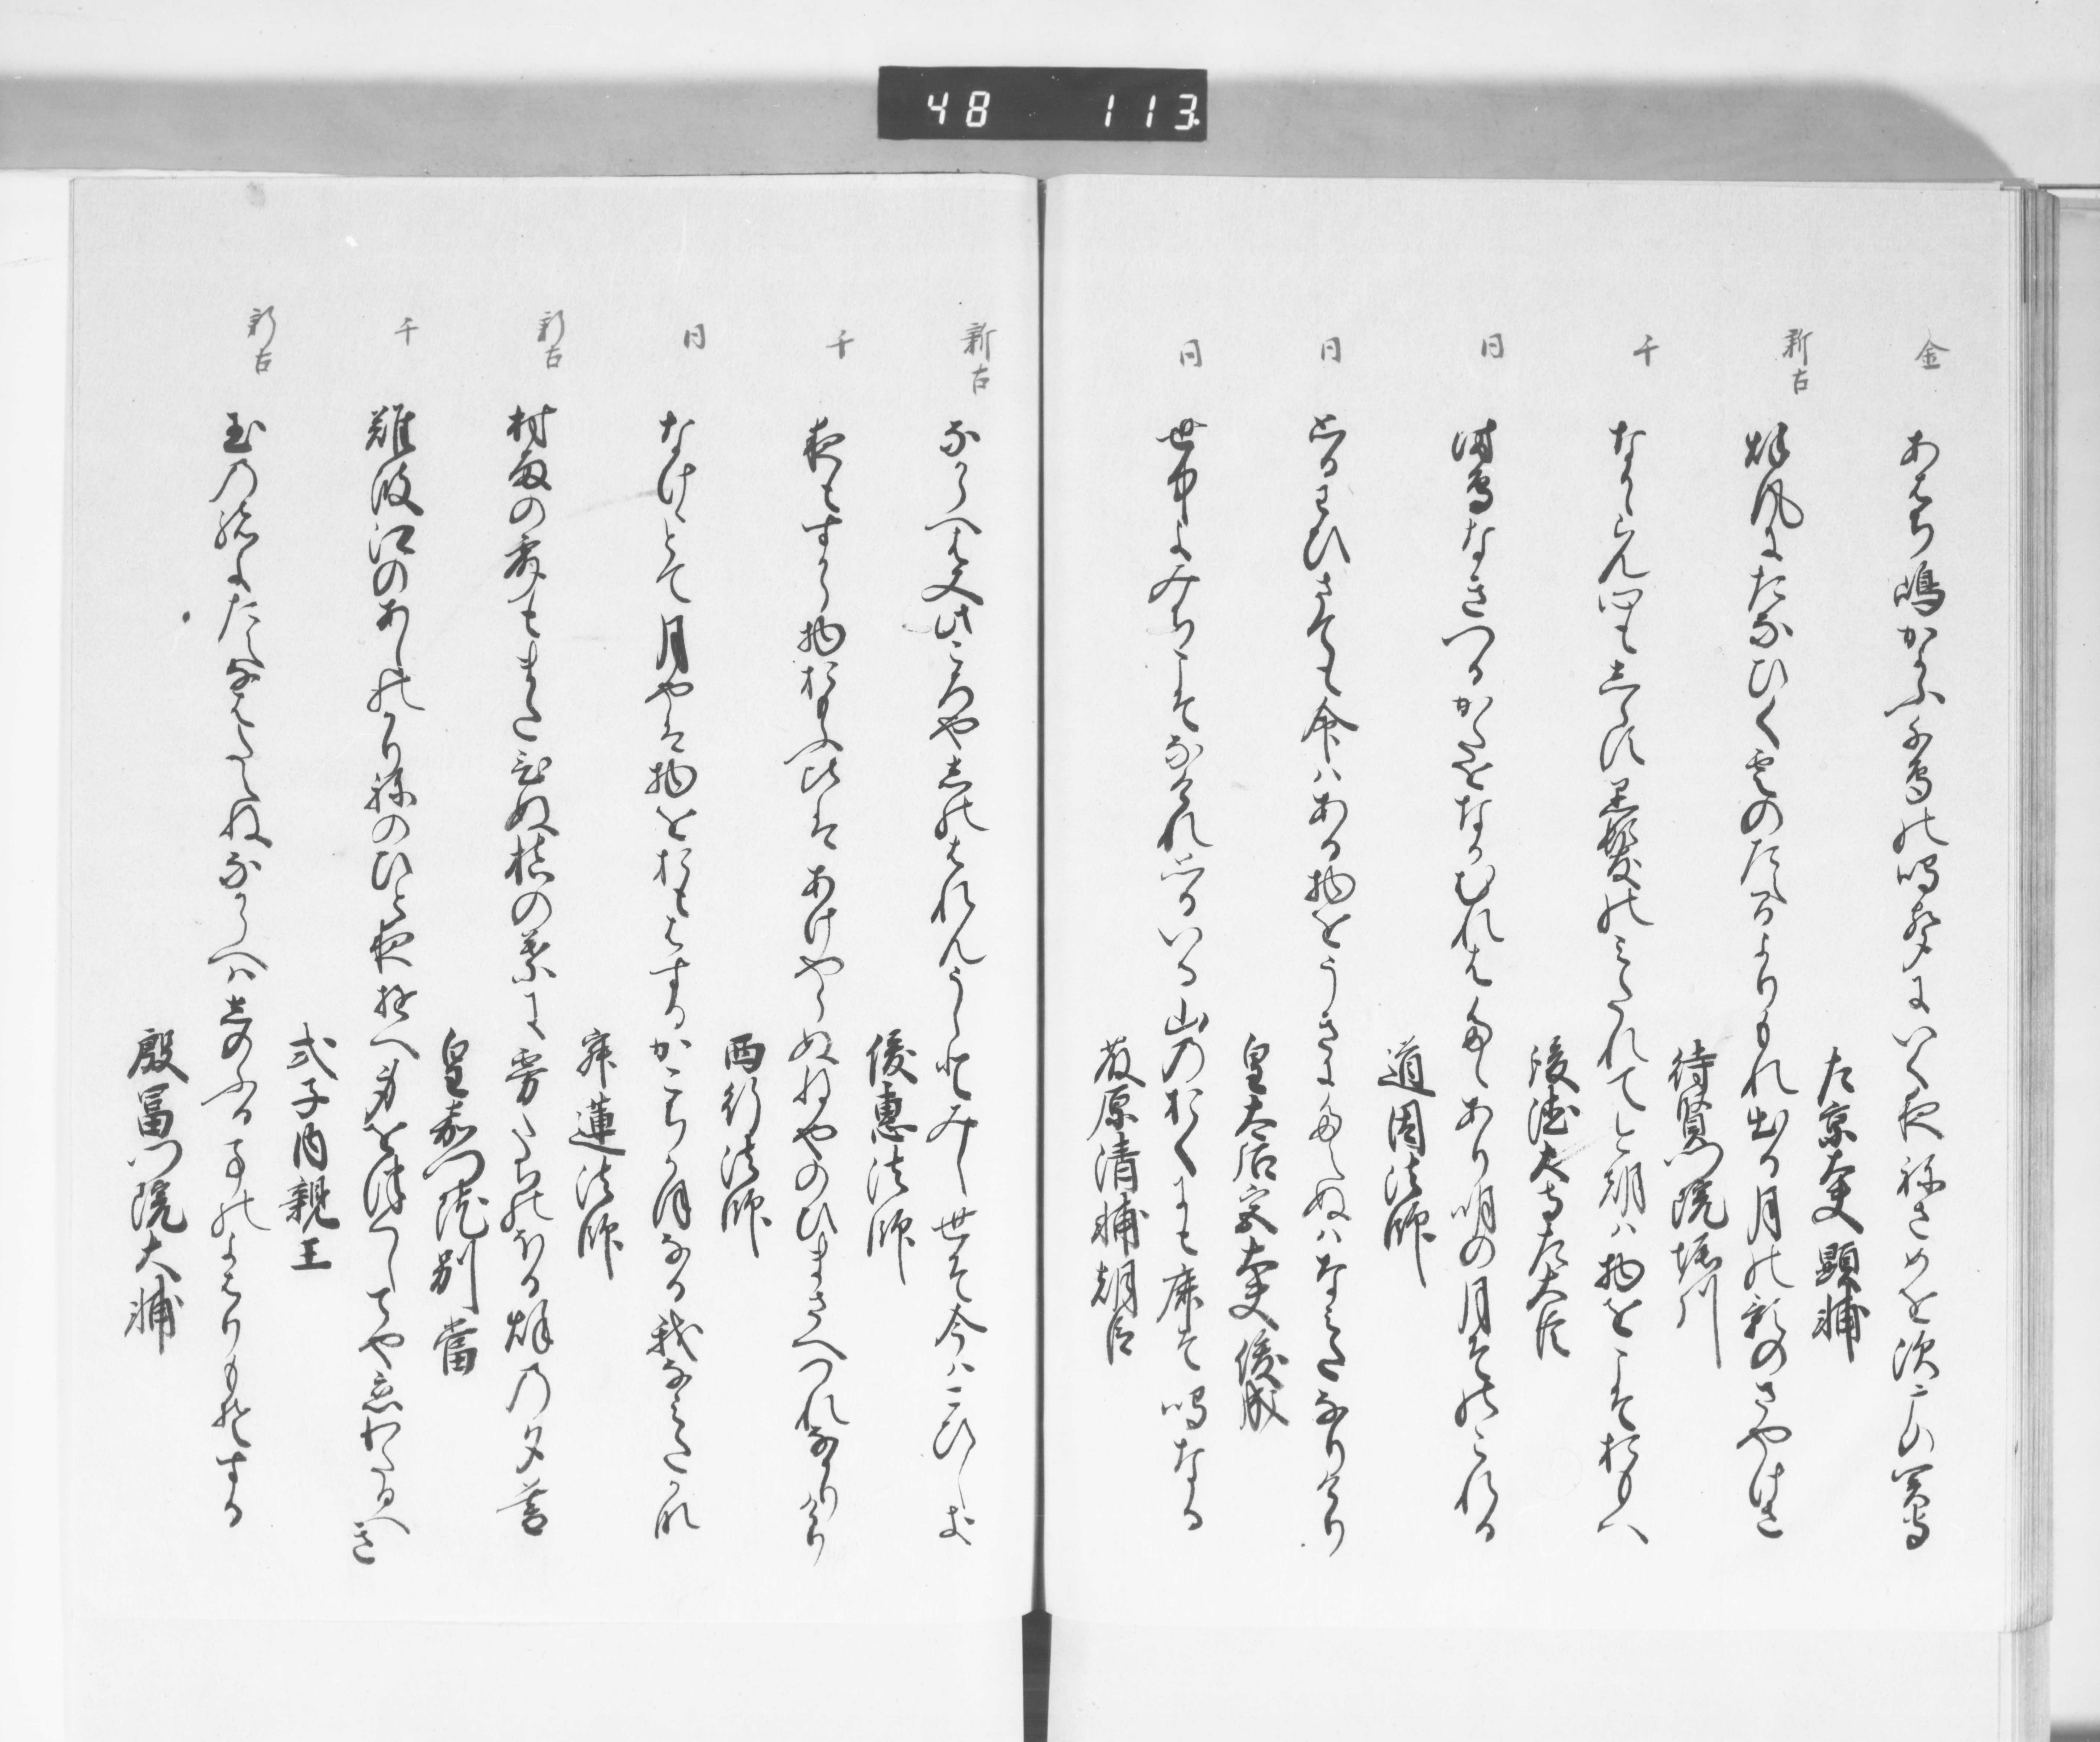 48 113
金
あはち嶋かよふ千鳥の鳴声にいく夜ねさめを次广の関守
左京大夫顕輔
新古
秋風にたなひく雲のたえまよりもれ出る月の影のさやけさ
待賢門院堀川
千
なかゝらん心もしらす黒髪のみたれてと朝ハ物をこそおもへ
後徳大寺左大臣
同
時鳥なきつるかたをなかむれはたゝあり明の月そのこれる
道因法師
同
思ひわひさても命ハある物をうきにたえぬハなみたなりけり
皇太后宮大夫俊成
同
世中よみちこそなけれ思ひいる山のおくにも鹿そ鳴なる
藤原清輔朝臣
新古
なからへは又此ころやしのはれんうしとみし世そ今ハこひしき
俊恵法師
千
夜もすから物おもふ比はあけやらぬねやのひまさへつれなかりけり
西行法師
同
なけゝとて月やは物をおもはするかこちかほなる我なみたかな
寂蓮法師
新古
村雨の露もまたひぬ槙の葉に霧たちのほる秋の夕暮
皇嘉門院別当
千
難波江のあしのかりねのひと夜ゆへ身を尽してや恋わたるへき
式子内親王
新古
玉の緒よたえなはたえねなからへハしのふる事のよはりもそする
殷冨門院大輔